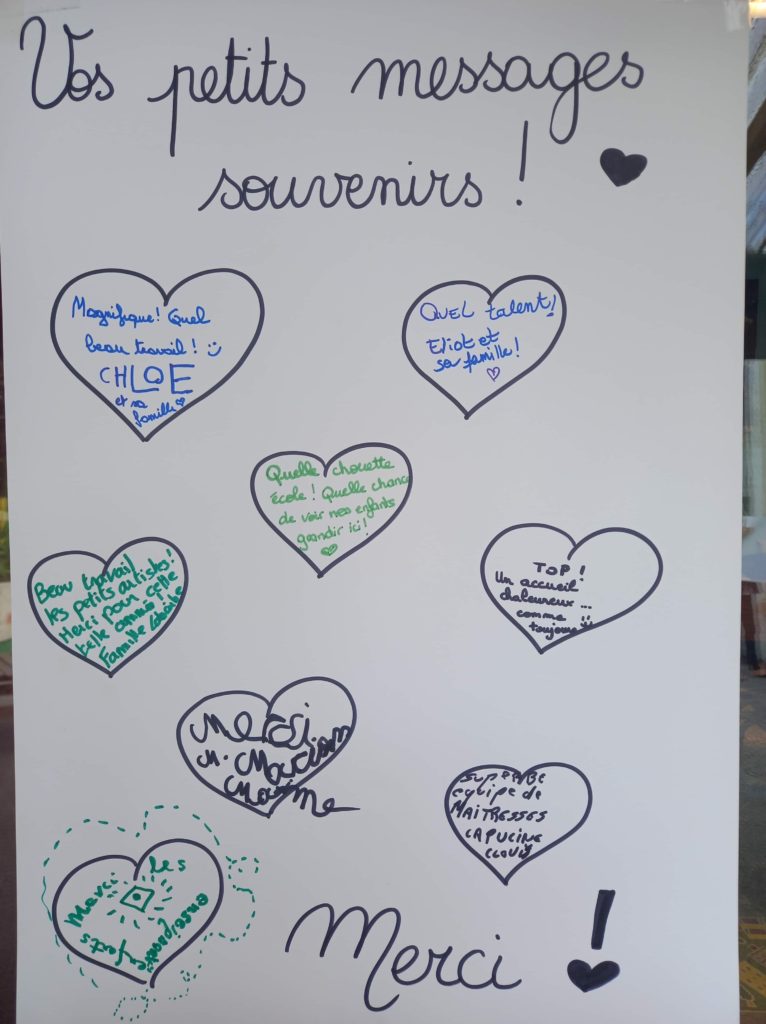 Vos petits messages
souvenirs !
Magnifique ! Quel
beau travail !
CHLOE
et sa
famille
QUEL talent !
Eliot et
sa famille !
Quelle chouette
école ! Quelle chance
de voir nos enfants
grandir ici !
Beau travail
les petits artistes !
Merci pour cette
belle année !
Famille
TOP !
Un accueil
chaleureux ...
comme
toujours
Merci
M.
SUPERBE
equipe de
MAITRESSES
CAPUCINE
CLOVIS
Merci les
enseignants
Merci !